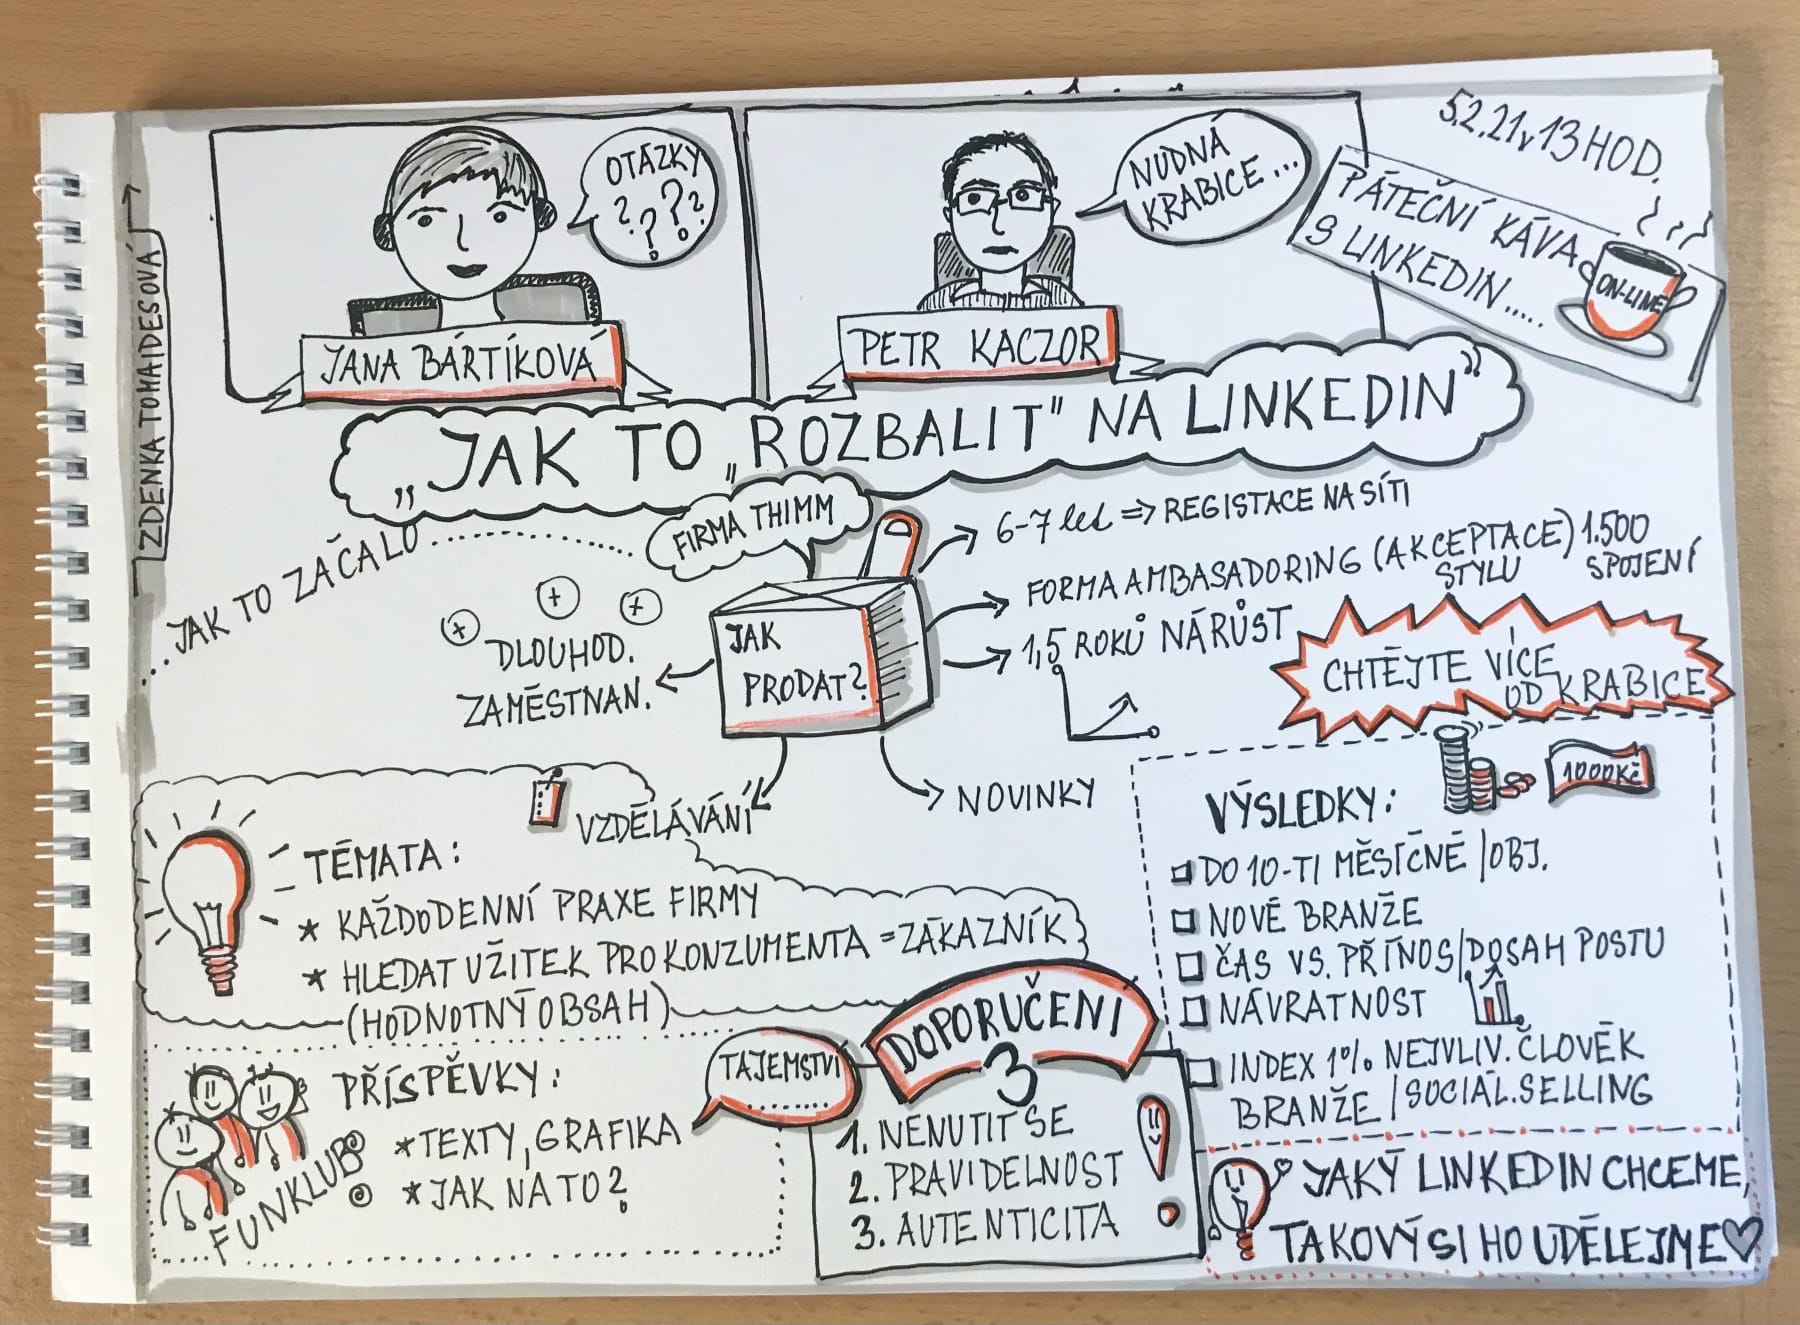 ZDENKA TOMAIDESOVÁ
OTÁZKY
? ? ? ?
NUDNÁ
KRABICE...
5.2.21 v 13 HOD.
PÁTEČNÍ KÁVA
S LINKEDIN.....
ON-LINE
JANA BÁRTÍKOVÁ
PETR KACZOR
„JAK TO „ROZBALIT" NA LINKEDIN"
...JAK TO ZAČALO..........
FIRMA THIMM
JAK
PRODAT?
6-7 let => REGISTACE NA SÍTI
FORMA AMBASADORING (AKCEPTACE) 1.500
STYLU SPOJENÍ
1,5 ROKŮ NÁRŮST
+ + +
DLOUHOD.
ZAMĚSTNAN.
VZDĚLÁVÁNÍ
NOVINKY
CHTĚJTE VÍCE
OD KRABICE
TÉMATA:
* KAŽDODENNÍ PRAXE FIRMY
* HLEDAT UŽITEK PRO KONZUMENTA = ZÁKAZNÍK
(HODNOTNÝ OBSAH)
PŘÍSPĚVKY:
* TEXTY, GRAFIKA
* JAK NA TO?
FUNKLUB
TAJEMSTVÍ
........
DOPORUČENI
3
1. NENUTIT SE
2. PRAVIDELNOST
3. AUTENTICITA
1000Kč
VÝSLEDKY:
DO 10-TI MĚSÍČNĚ/OBJ.
NOVÉ BRANŽE
ČAS VS. PŘÍNOS/DOSAH POSTU
NÁVRATNOST
INDEX 1% NEJVLIV. ČLOVĚK
BRANŽE/SOCIÁL.SELLING
JAKÝ LINKEDIN CHCEME,
TAKOVÝ SI HO UDĚLEJME